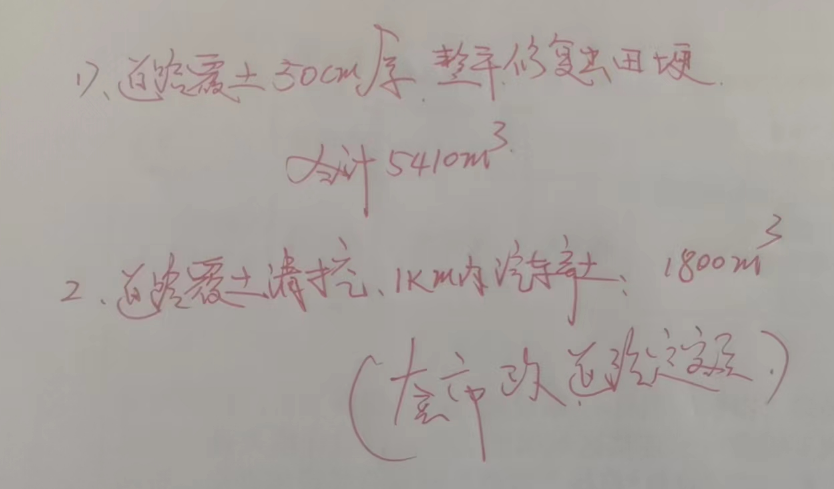 1)、道路覆土50cm厚.整平.修复出田埂.
合计5410m³.
2、道路覆土清挖、1Km内汽车弃土:1800m³
(套市政道路定额.)